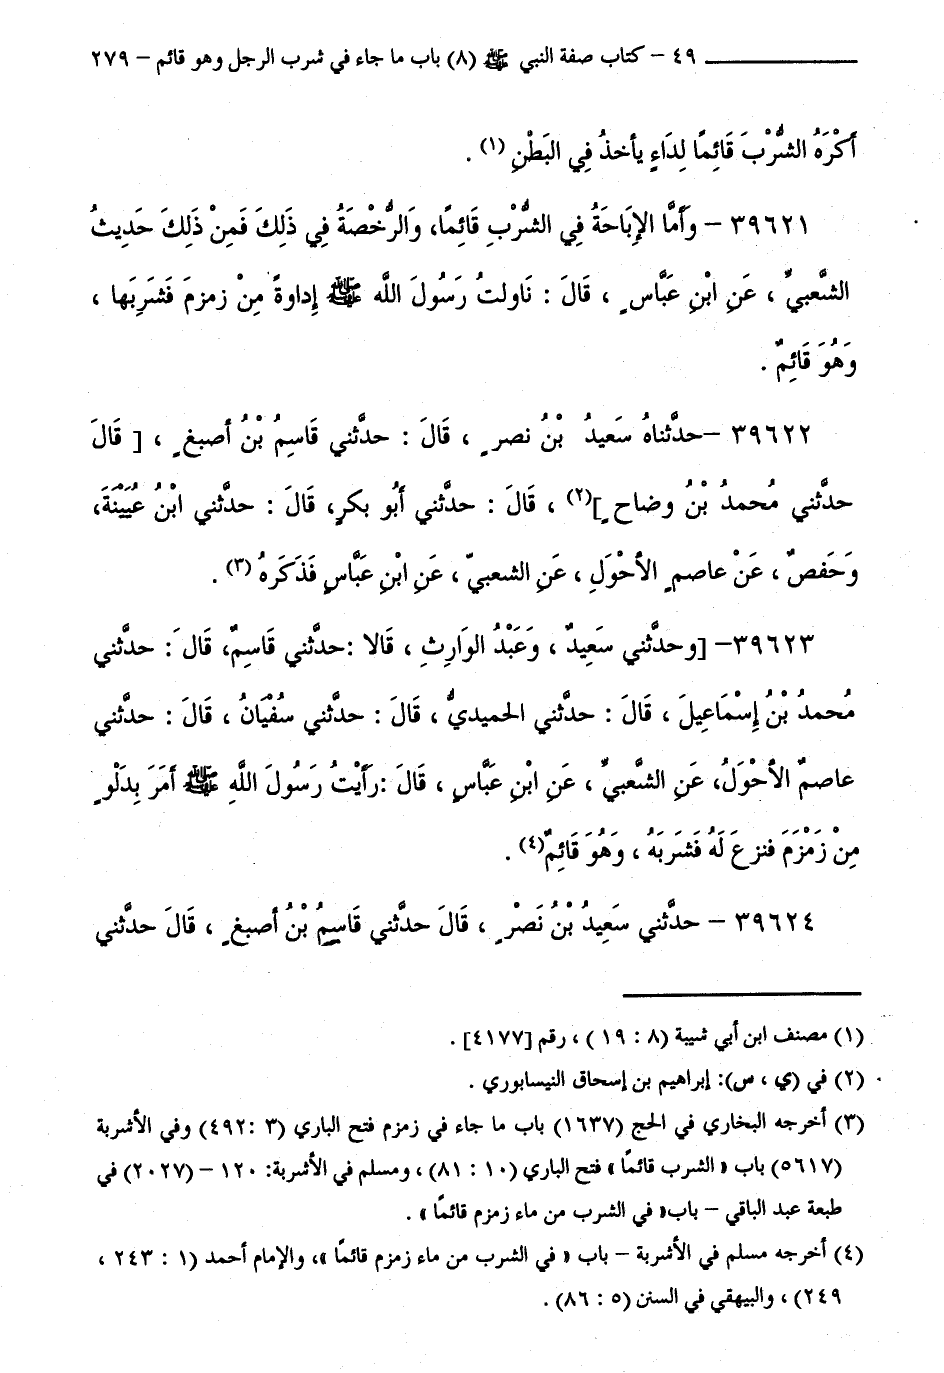 ٤٩ – كتاب صفة النبي ﷺ (٨) باب ما جاء في شرب الرجل وهو قائم – ٢٧٩
أَكْرَهُ الشُّرْبَ قَائِمًا لِدَاءٍ يأخذُ فِي البَطْنِ (١) .
٣٩٦٢١ – وَأَمَّا الإِبَاحَةُ فِي الشُّرْبِ قَائِمًا، وَالرُّخْصَةُ فِي ذَلِكَ فَمِنْ ذَلِكَ حَدِيثُ
الشَّعبيِّ ، عَنِ ابْنِ عَبَّاسٍ ، قَالَ : نَاولتُ رَسُولَ اللَّه ﷺ إِداوةً مِنْ زمزمَ فَشَرِبَها ،
وَهُوَ قَائِمٌ .
٣٩٦٢٢ –حدَّثناهُ سَعِيدُ بْنُ نصرٍ ، قَالَ : حدَّثني قَاسِمُ بْنُ أصبغٍ ، [ قَالَ
حدَّثني مُحمدُ بْنُ وضاحٍ ](٢) ، قَالَ : حدثني أَبُو بكرٍ، قَالَ : حدَّثني ابْنُ عُيَيْنَةَ،
وَحَفصٌ ، عَنْ عاصمٍ الأَحْوَلِ ، عَنِ الشعبيّ ، عَنِ ابْنِ عَبَّاسٍ فَذَكَرَهُ (٣) .
٣٩٦٢٣– [وحدَّثني سَعِيدٌ ، وَعَبْدُ الوَارِثِ ، قَالا :حدَّثني قَاسِمٌ، قَال َ: حدَّثني
مُحمدُ بْنُ إِسْمَاعِيلَ ، قَالَ : حدَّثني الحميديُّ ، قَالَ : حدَّثني سُفْيَانُ ، قَالَ : حدَّثني
عاصمٌ الأَحْوَلُ، عَنِ الشَّعبيِّ ، عَنِ ابْنِ عَبَّاسٍ ، قَالَ :رَأَيْتُ رَسُولَ اللَّهِ ﷺ أَمَرَ بِدَلْوٍ
مِنْ زَمْزَمَ فنزعَ لَهُ فَشَرِبَهُ ، وَهُوَ قَائِمٌ(٤) .
٣٩٦٢٤ – حدَّثني سَعِيدُ بْنُ نَصْرٍ ، قَالَ حدَّثني قَاسِمُ بْنُ أصبغٍ ، قَالَ حدَّثني
(١) مصنف ابن أبي شيبة (٨ : ١٩ ) ، رقم [٤١٧٧] .
(٢) في (ي ، س): إبراهيم بن إسحاق النيسابوري .
(٣) أخرجه البخاري في الحج (١٦٣٧) باب ما جاء في زمزم فتح الباري (٣ :٤٩٢) وفي الأشربة
(٥٦١٧) باب « الشرب قائمًا » فتح الباري (١٠ : ٨١) ، ومسلم في الأشربة: ١٢٠ – (٢٠٢٧) في
طبعة عبد الباقي – باب« في الشرب من ماء زمزم قائمًا » .
(٤) أخرجه مسلم في الأشربة – باب « في الشرب من ماء زمزم قائمًا »، والإمام أحمد (١ : ٢٤٣ ،
٢٤٩) ، والبيهقي في السنن (٥ : ٨٦) .